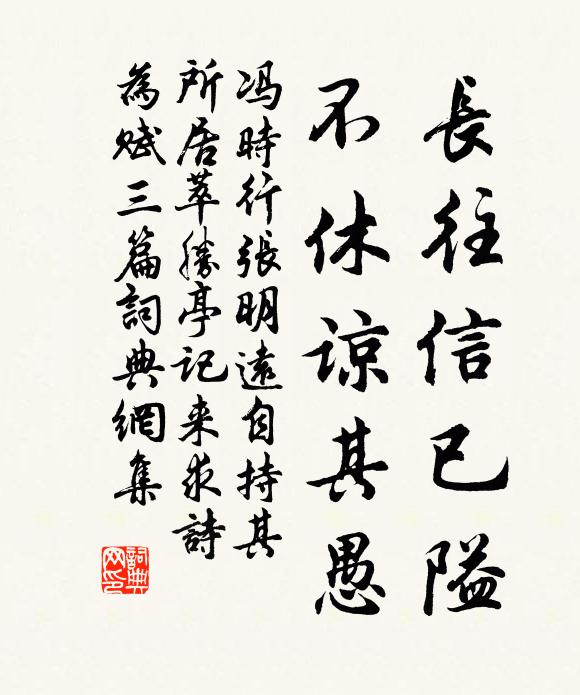 長往信已隘
不休諒其愚
馮時行張明遠自持其
所居萃勝亭記来求詩
為賦三篇詞典網集
詞典網印